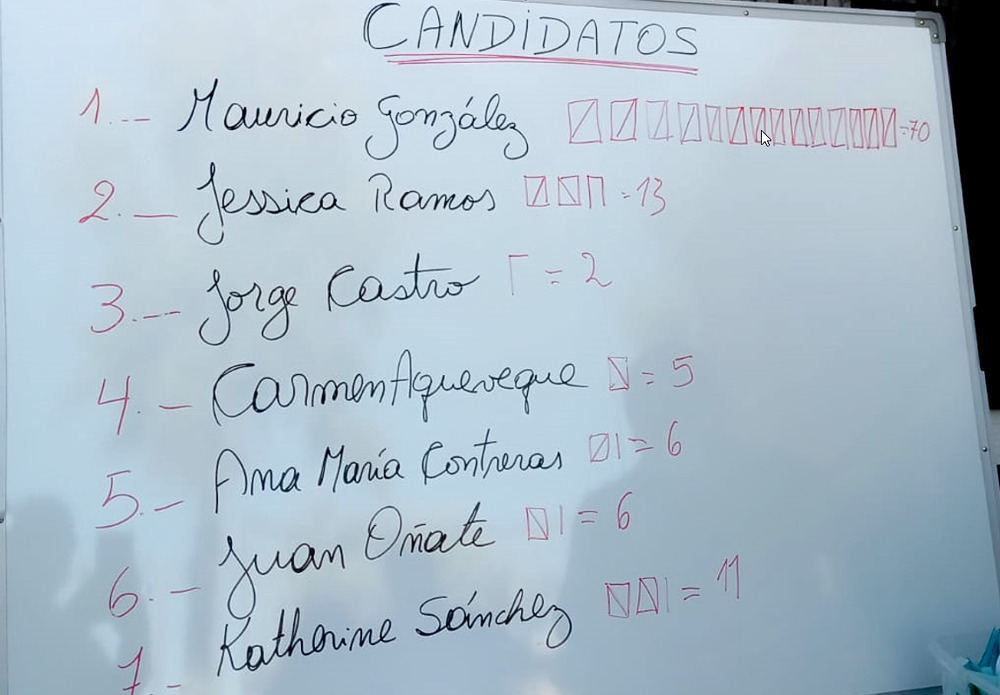 CANDIDATOS
1.-- Mauricio González =70
2.- Jessica Ramos =13
3.-- Jorge Castro = 2
4.- Carmen Aqueveque = 5
5.- Ana María Contreras = 6
6.- Juan Oñate = 6
7.- Katherine Sánchez = 11